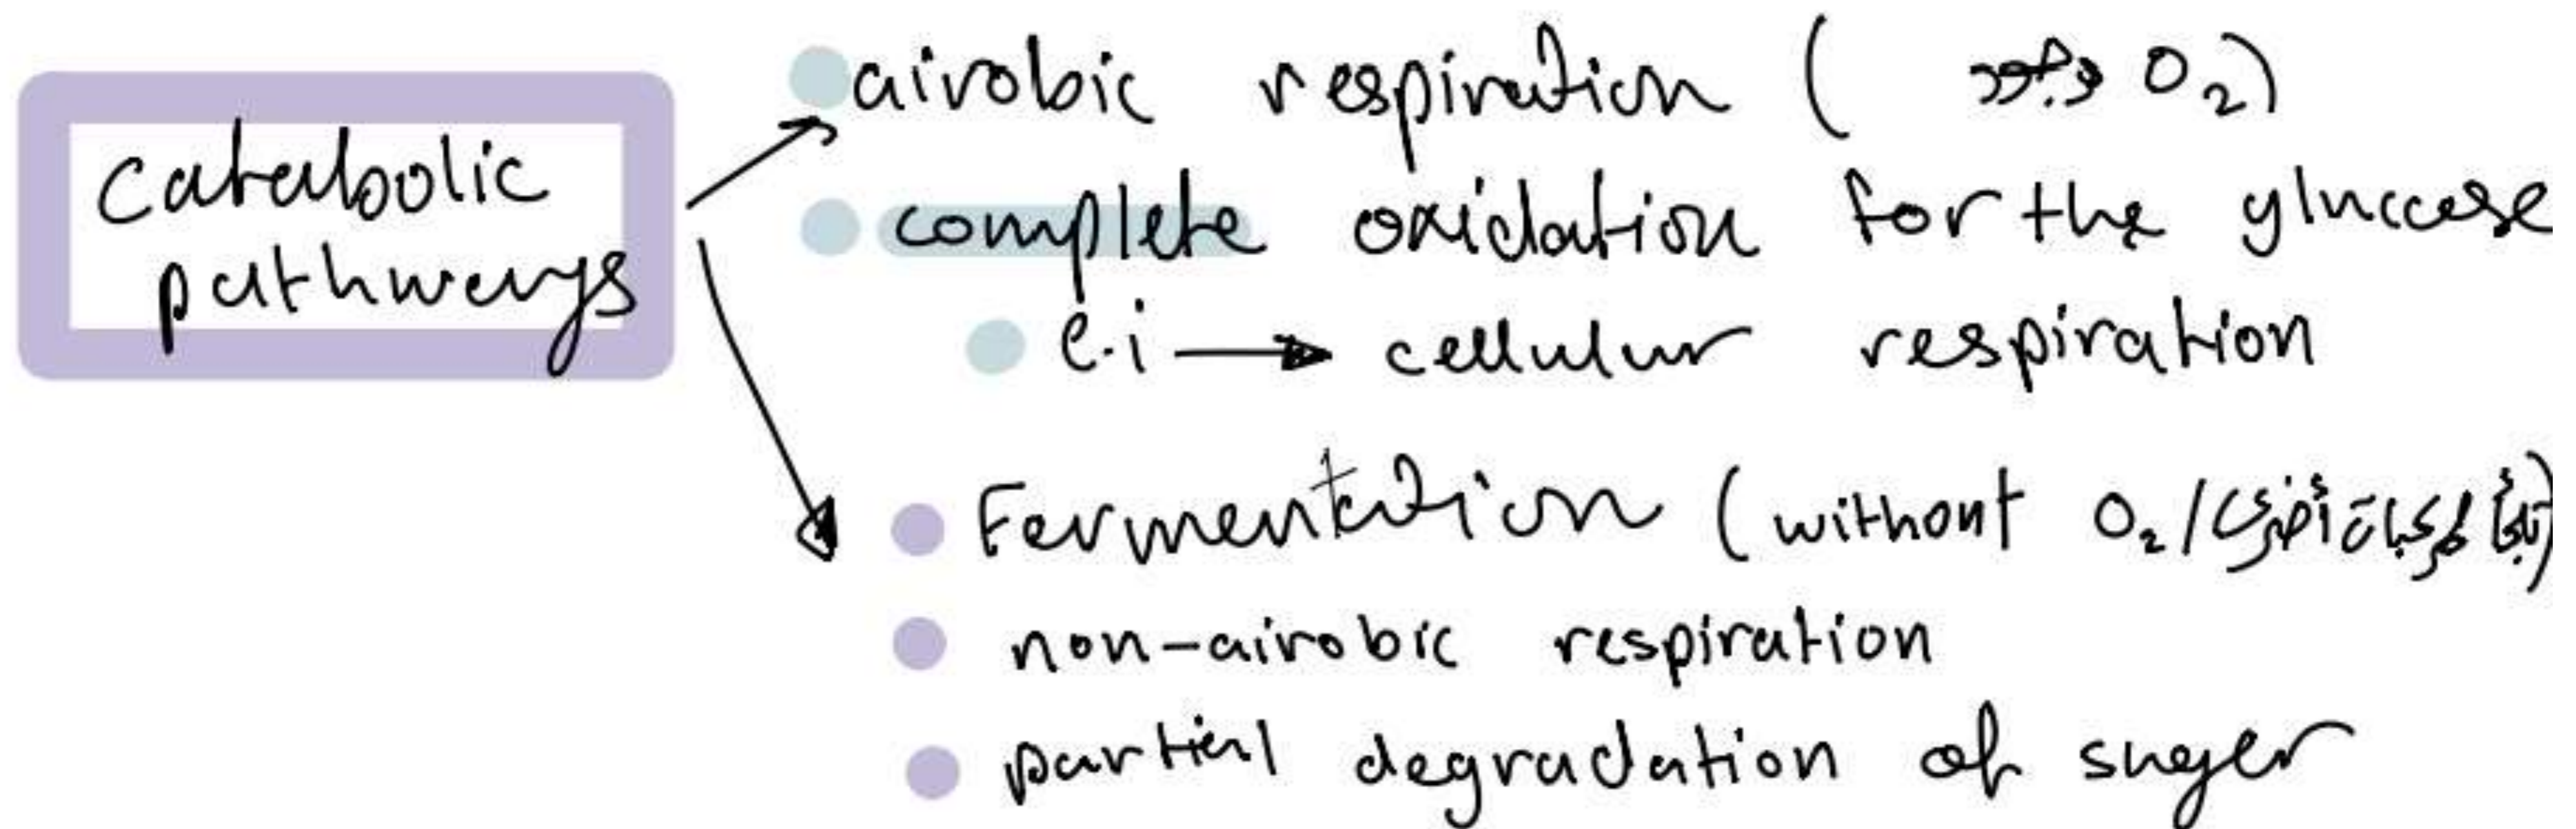 catabolic
pathways
airobic respiration ( وجود O₂)
complete oxidation for the gluccose
e.i → cellular respiration
Fermentation (without O₂/ لمركبات أخرى)
non-airobic respiration
partial degradation of suger